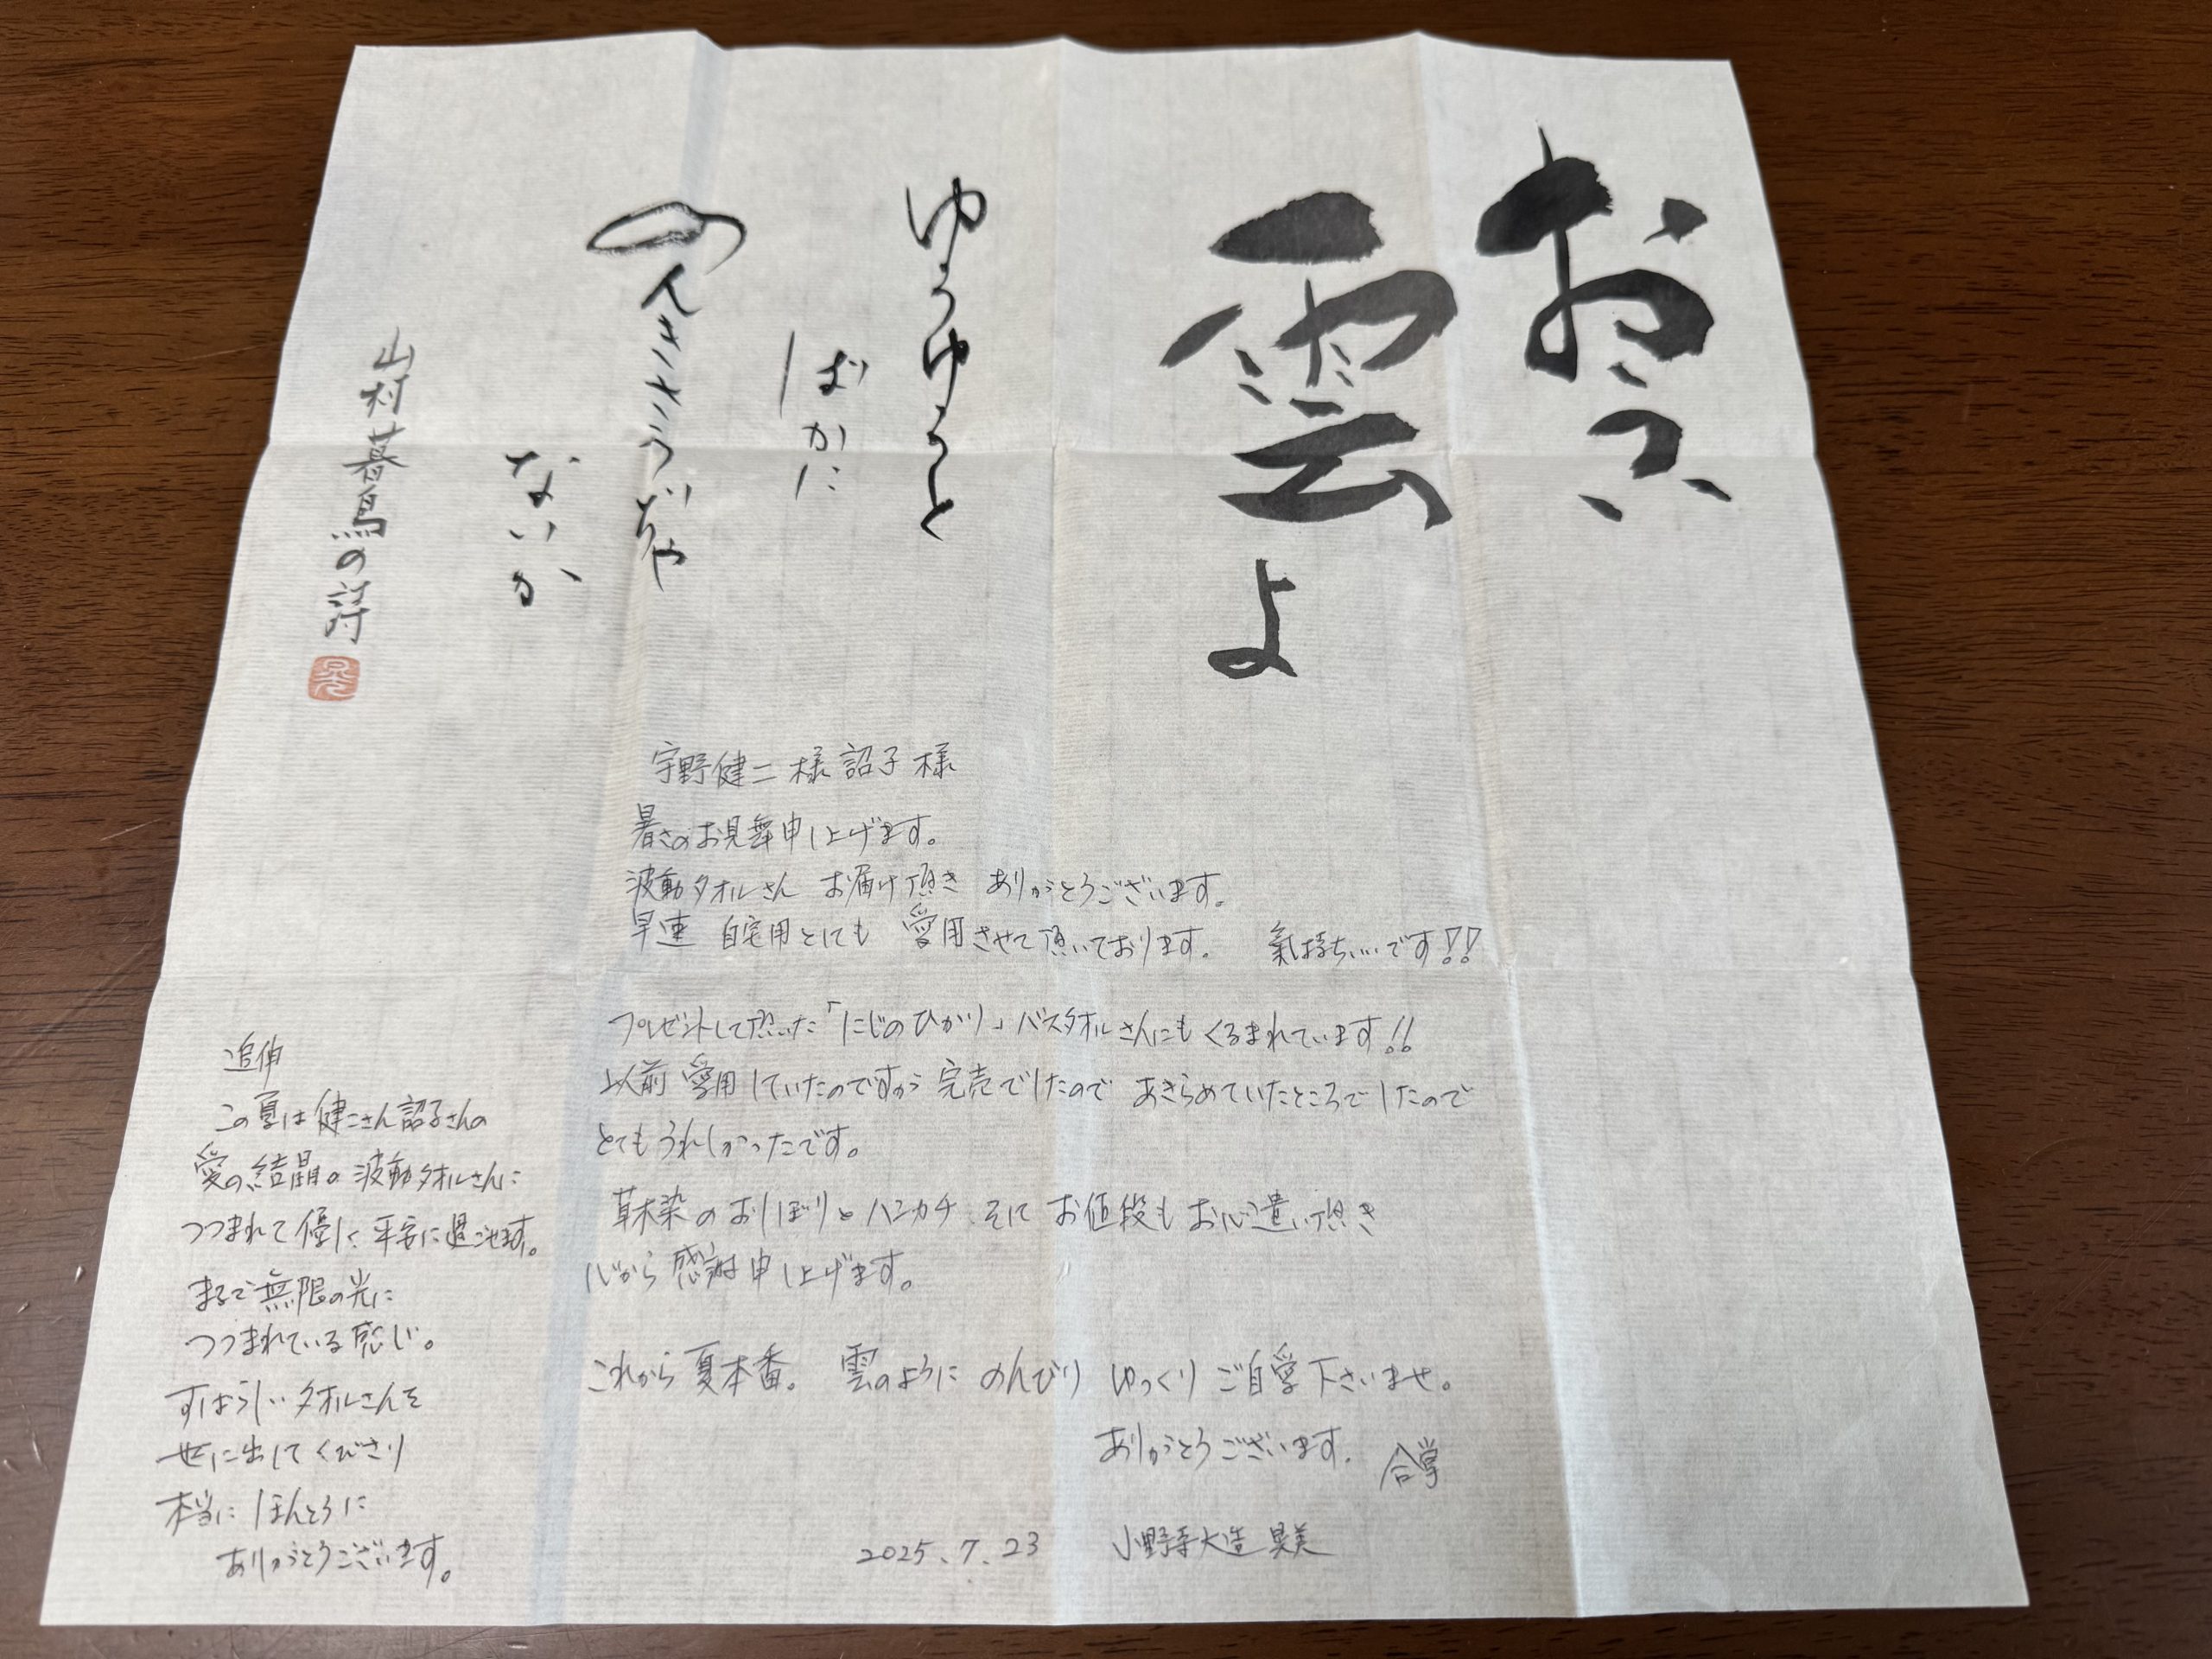 おうい
雲よ
ゆうゆうと
ばかに
のんきさうぢや
ないか
山村暮鳥の詩
宇野健二様 詔子様
暑さのお見舞申し上げます。
波動タオルさん お届け頂き ありがとうございます。
早速 自宅用としても 愛用させて頂いております。 氣持ちいいです!!
プレゼントして頂いた「にじのひかり」バスタオルさんにもくるまれています!!
以前愛用していたのですが完売でしたので あきらめていたところでしたので
とてもうれしかったです。
草木染のおしぼりとハンカチ、そして お値段も お心遣い頂き
心から感謝申し上げます。
これから夏本番。 雲のように のんびり ゆっくり ご自愛下さいませ。
ありがとうございます。 合掌
2025.7.23 小野寺大造 晃美
追伸
この夏は健二さん詔子さんの
愛の結晶の波動タオルさんに
つつまれて優しく平安に過ごせます。
まるで無限の光に
つつまれている感じ。
すばらしいタオルさんを
世に出してくださり
本当にほんとうに
ありがとうございます。